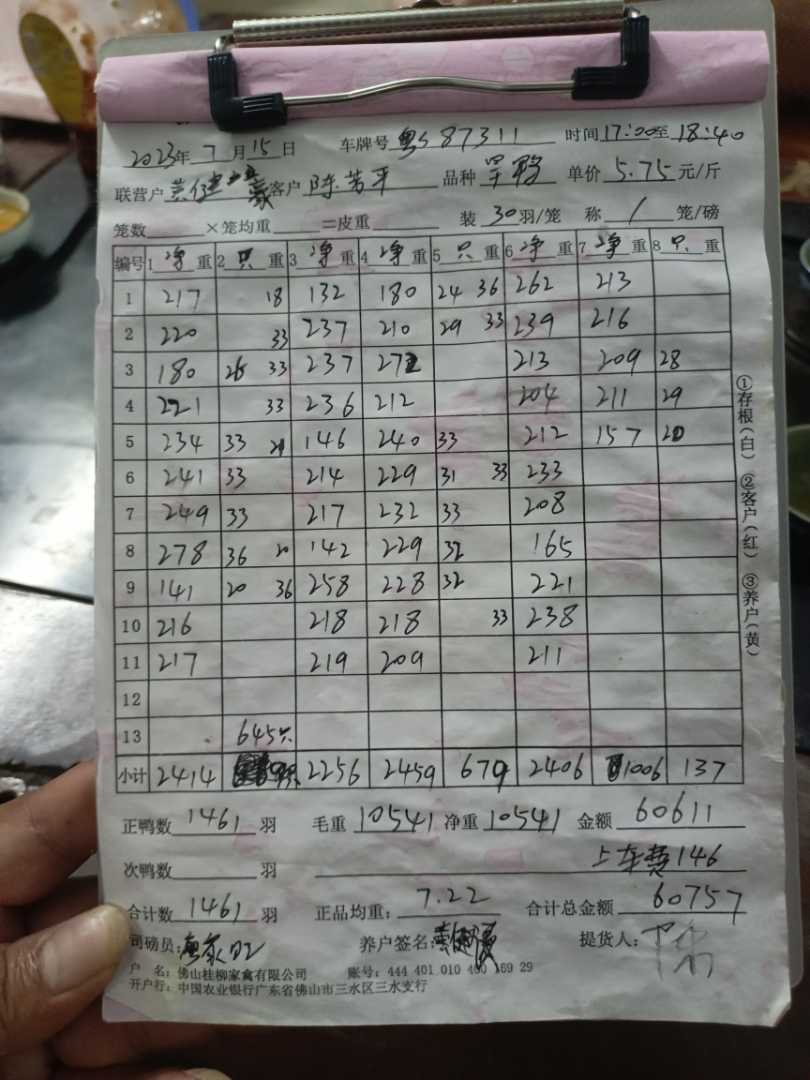 2023年 7 月 15 日 车牌号 粤S 87311 时间 17:00至 18:40
联营户 客户 陈芳平 品种 旱鸭 单价 5.75 元/斤
笼数 ×笼均重 =皮重 装 30 羽/笼 称 1 笼/磅
编号 1 净 重 2 只 重 3 净 重 4 净 重 5 只 重 6 净 重 7 净 重 8 只 重
1 217 18 132 180 24 36 262 213
2 220 33 237 210 29 33 239 216
3 180 26 33 237 272 213 209 28
4 221 33 236 212 204 211 29
5 234 33 146 240 33 212 157
6 241 33 214 229 31 33 233
7 249 33 217 232 33 208
8 278 36 20 142 229 32 165
9 141 20 36 258 228 32 221
10 216 218 218 33 238
11 217 219 209 211
12
13 645只
小计 2414 2256 2459 679 2406 1006 137
正鸭数 1461 羽 毛重 10541 净重 10541 金额 60611
次鸭数 羽 上车费146
合计数 1461 羽 正品均重: 7.22 合计总金额 60757
司磅员: 养户签名: 提货人:
户 名: 佛山桂柳家禽有限公司 账号: 444 401 010 400 169 29
开户行: 中国农业银行广东省佛山市三水区三水支行
①存根(白) ②客户(红) ③养户(黄)